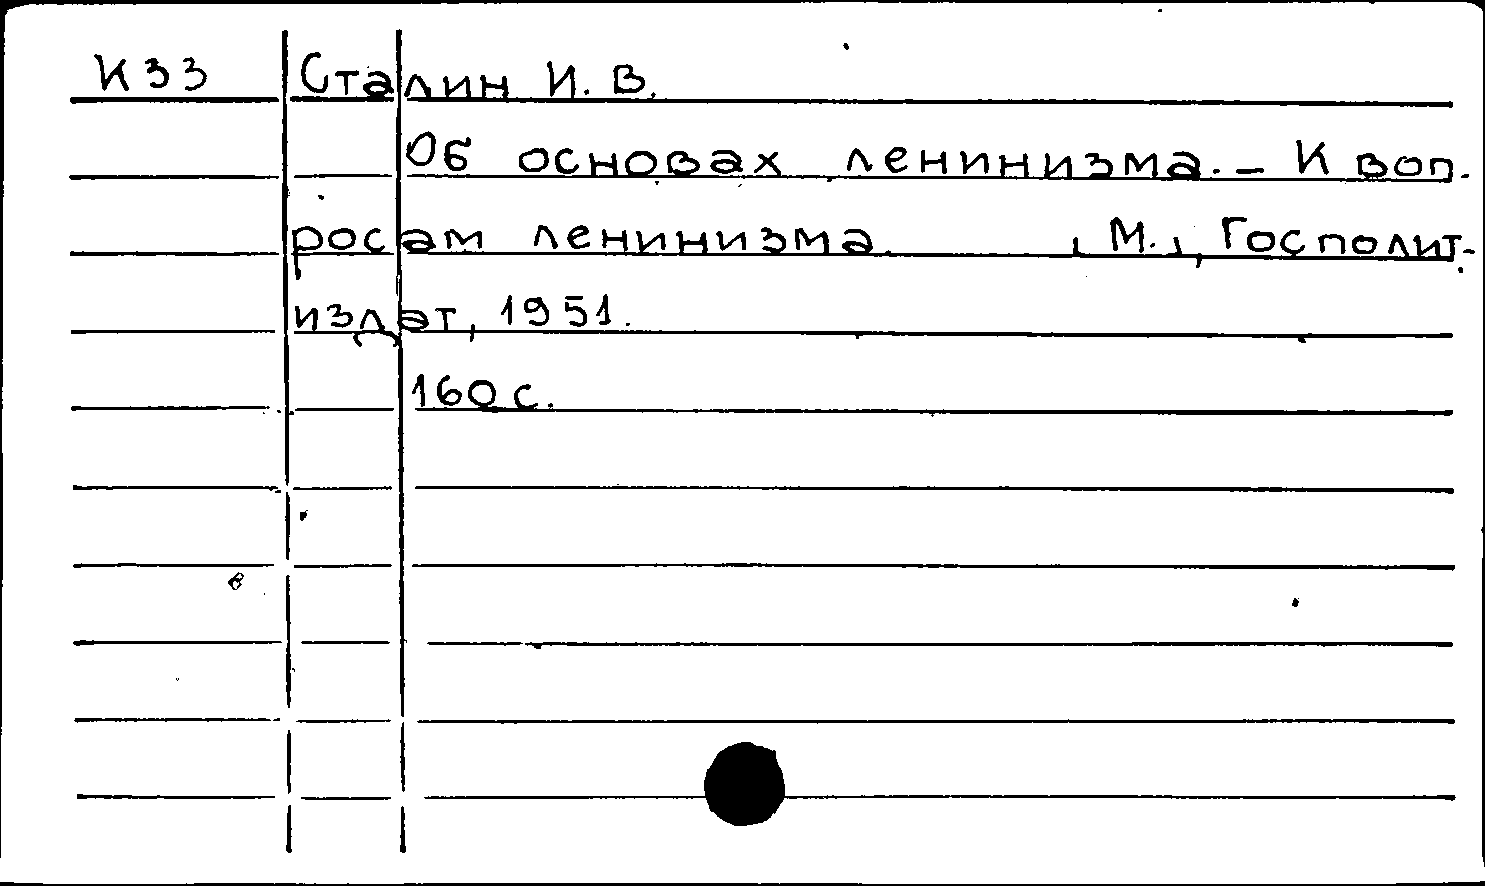 К 33 Сталин И. В.
Об основах ленинизма. – К воп-
росам ленинизма. , М., Госполит-
издат, 1951.
160 с.